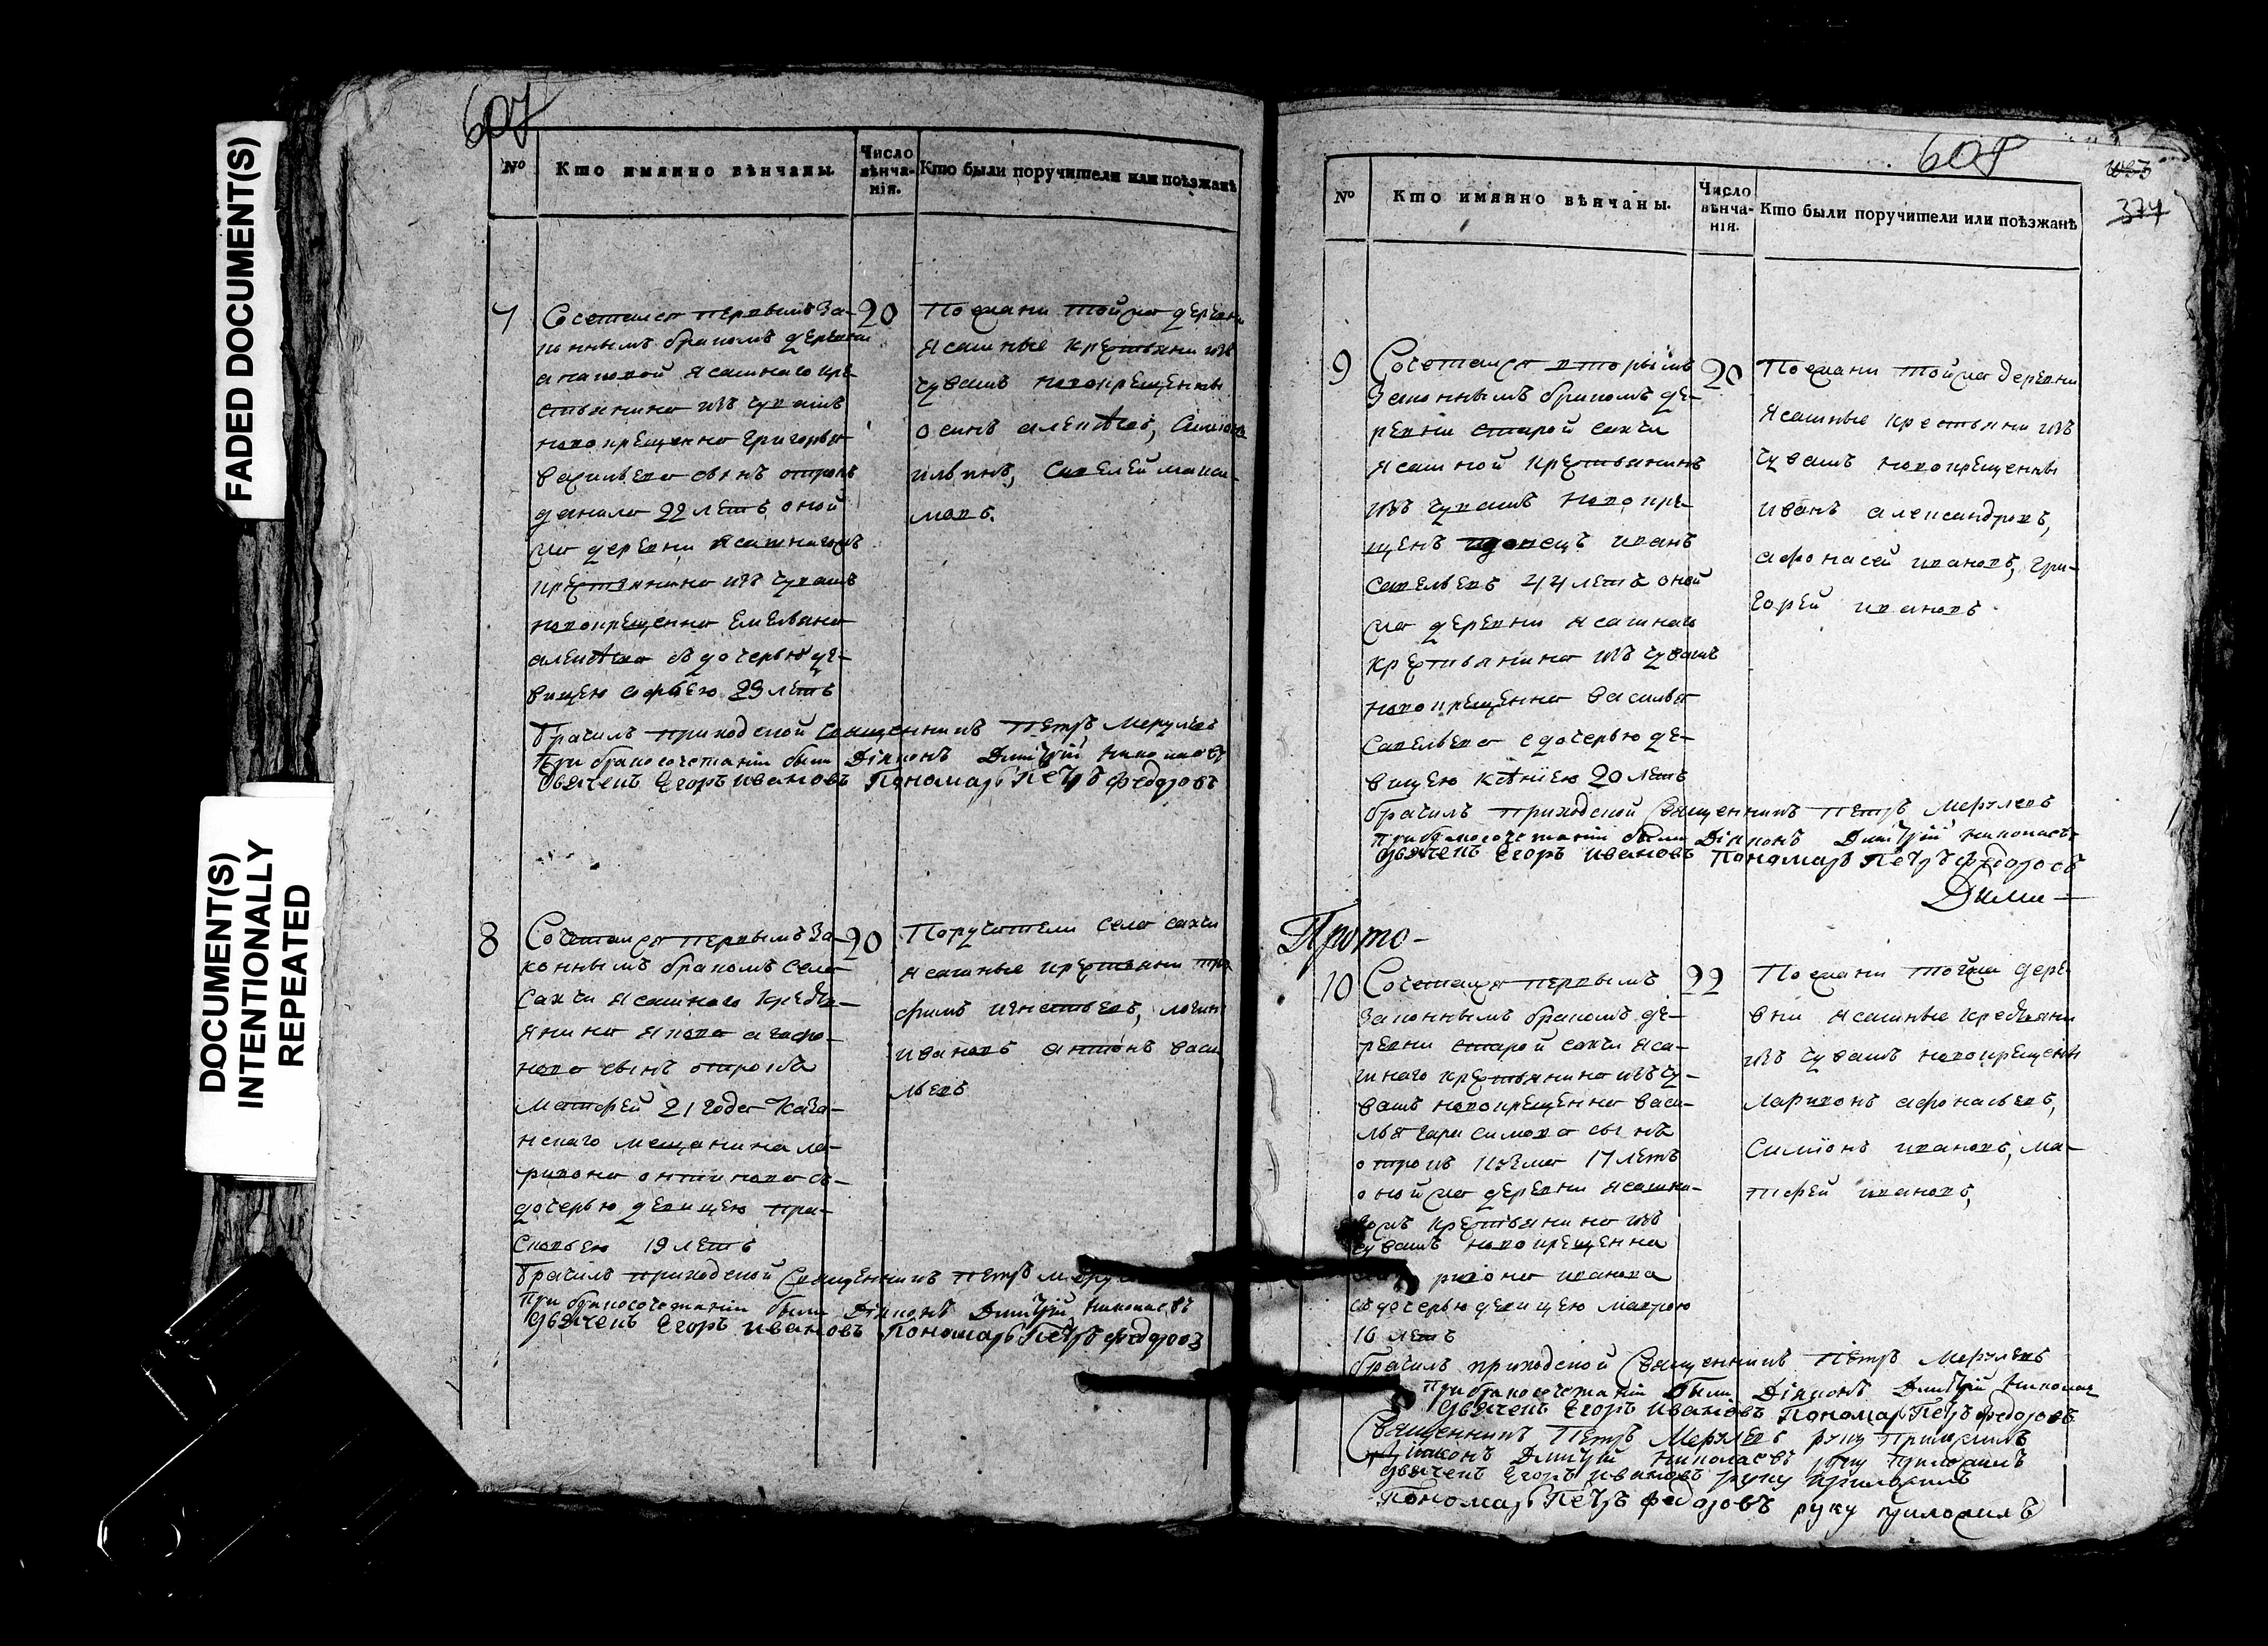 FADED DOCUMENT(S)
DOCUMENT(S)
INTENTIONALLY
REPEATED
607
№
Кто имянно вѣнчаны.
Число
вѣнча-
нія.
Кто были поручители или поѣзжанѣ
7
Сочетался первымъ За-
коннымъ бракомъ деревни
ясашнаго кре-
стьянина изъ чувашъ
новокрещенна Григорья
Васильева сынъ отрокъ
данило 22 летъ оной
же деревни ясашнаго
крестьянина изъ чувашъ
новокрещенна Емельяна
алексѣева съ дочерью де-
вицею софьею 23 летъ
20
Поезжани тойже деревни
Ясашные крестьяни изъ
чувашъ новокрещенны
осипъ алексѣевъ, Симионъ
ильинъ, Савелей макси-
мовъ.
Брачилъ приходской Священникъ Петръ Меркулевъ
При бракосочетаніи были Діяконъ Дмитрій Николаевъ
Дьячекъ Егоръ Ивановъ Пономарь Петръ Федоровъ
8
Сочетался первымъ За-
коннымъ бракомъ села
Сакчи Ясашнаго крестья-
янина якова агафо-
нова сынъ отрокъ
Матфей 21 года каза-
нскаго мещанина ла-
риона съ-
дочерью девицею пра-
сковьею 19 летъ
20
Поручители села сакчи
ясашные крестьяни тро-
фимъ игнатьевъ, логинъ
ивановъ антонъ васи-
льевъ
Брачилъ приходской Священникъ Петръ
При бракосочетаніи были Діяконъ Дмитрій Николаевъ
Дьячекъ Егоръ Ивановъ Пономарь Петръ Федоровъ
608
374
№
Кто имянно вѣнчаны.
Число
вѣнча-
нія.
Кто были поручители или поѣзжанѣ
9
Сочетался вторымъ
Законнымъ бракомъ де-
ревни старой сакчи
Ясашной крестьянинъ
изъ чувашъ новокре-
щенъ вдовецъ иванъ
Савельевъ 44 летъ оной
же деревни ясашнаго
крестьянина изъ чувашъ
новокрещенна василья
Савельева с дочерью де-
вицею ксѣніею 20 летъ
20
Поезжани тойже деревни
Ясашные крестьяни изъ
чувашъ новокрещенны
иванъ александровъ,
афонасей ивановъ, гри-
горей ивановъ
брачилъ приходской Священникъ Петръ Меркулевъ
При бракосочетаніи были Діяконъ Дмитрій Николаевъ
Дьячекъ Егоръ Ивановъ Пономарь Петръ Федоровъ
Дими-
Прото-
10
Сочетался первымъ
Законнымъ бракомъ де-
ревни старой сакчи яса-
шнаго крестьянина изъ чу-
вашъ новокрещенна васи-
лья гарасимова сынъ
отрокъ 17 летъ
оной же деревни ясашна-
крестьянина изъ
чувашъ новокрещенна
риона иванова
съ дочерью девицею маврою
16 летъ
22
Поезжани тойже дере-
вни ясашные крестьяни
изъ чувашъ новокрещенны
Ларионъ афонасьевъ,
Симіонъ ивановъ, ма-
тфей ивановъ,
брачилъ приходской Священникъ Петръ Меркулевъ
При бракосочетаніи были Діяконъ Дмитрій Николаевъ
Дьячекъ Егоръ Ивановъ Пономарь Петръ Федоровъ
Священникъ Петръ Меркулевъ руку приложилъ
Діяконъ Дмитрій Николаевъ руку приложилъ
Дьячекъ Егоръ Ивановъ руку приложилъ
Пономарь Петръ Федоровъ руку приложилъ